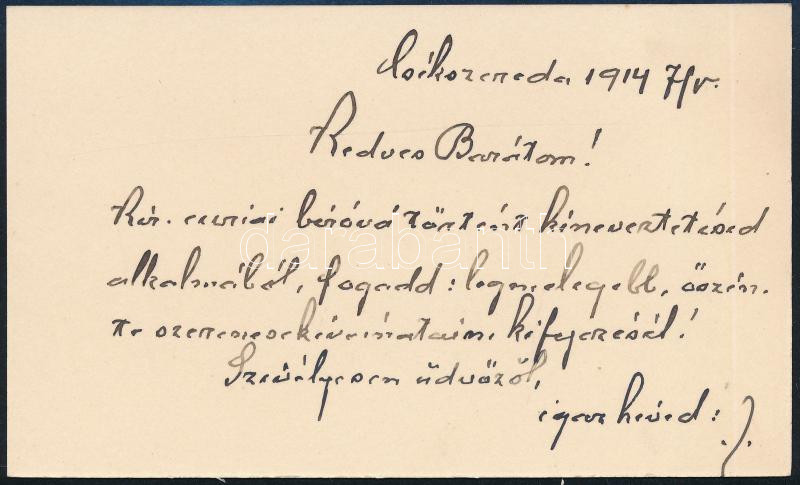 Csíkszereda 1914 7/V.
Kedves Barátom!
Kir. curiai bíróvá történt kineveztetésed
alkalmából, fogadd: legmelegebb, őszin-
te szerencsekívánataim kifejezését!
Szívélyesen üdvözöl,
igaz híved:
darabanth